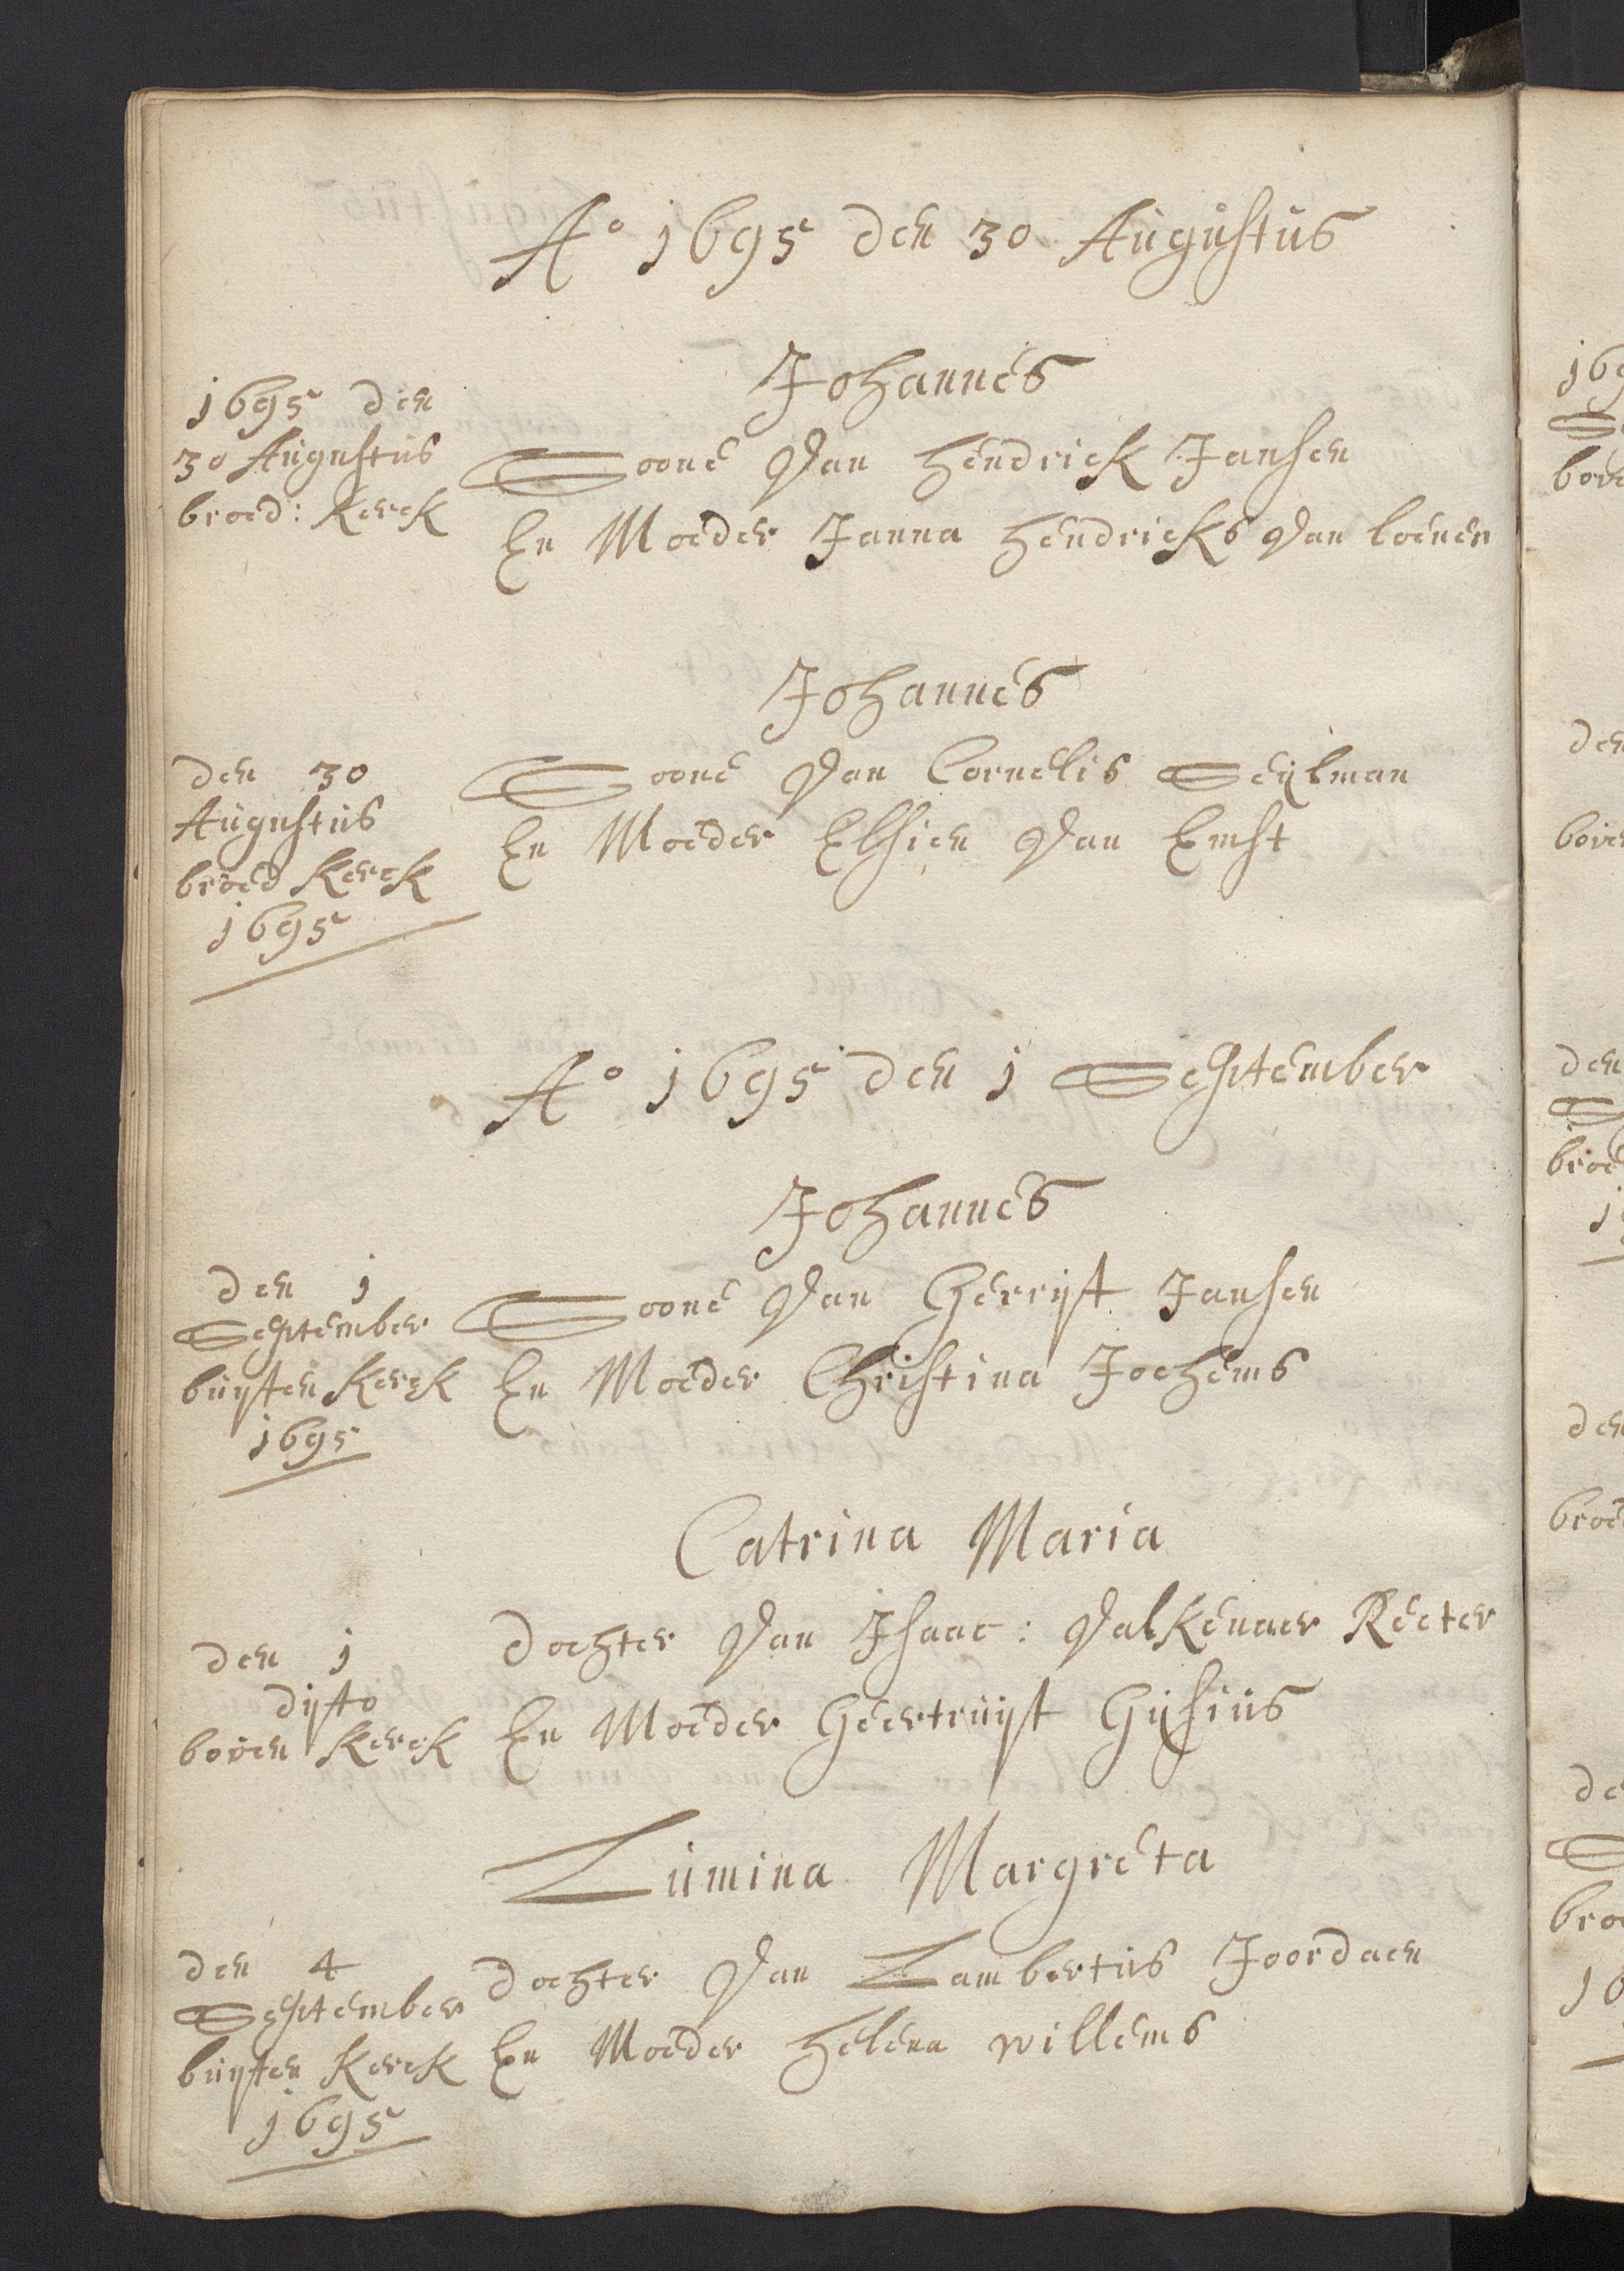 Ao 1695 den 30 Augustus
1695 den
30 Augustus
broed: Kerck
Johannes
Soone Van Hendrick Jansen
En Moeder Janna Hendricks Van loenen
Johannes
den 30
Augustus
broed Kerck
1695
Soone Van Cornelis Seijlman
En Moeder Elsien Van Emst
Ao 1695 den 1 September
Johannes
den 1
September
buijten Kerck
1695
Soone Van Gerrijt Jansen
En Moeder Christina Jochems
Catrina Maria
den 1
dijto
boven Kerck
dochter Van Isaac: Valkenaer Recter
En Moeder Geertruijt Gijsius
Lumina Margreta
den 4
September
buijten Kerck
1695
dochter Van Lambertus Joordaen
En Moeder Helena willems